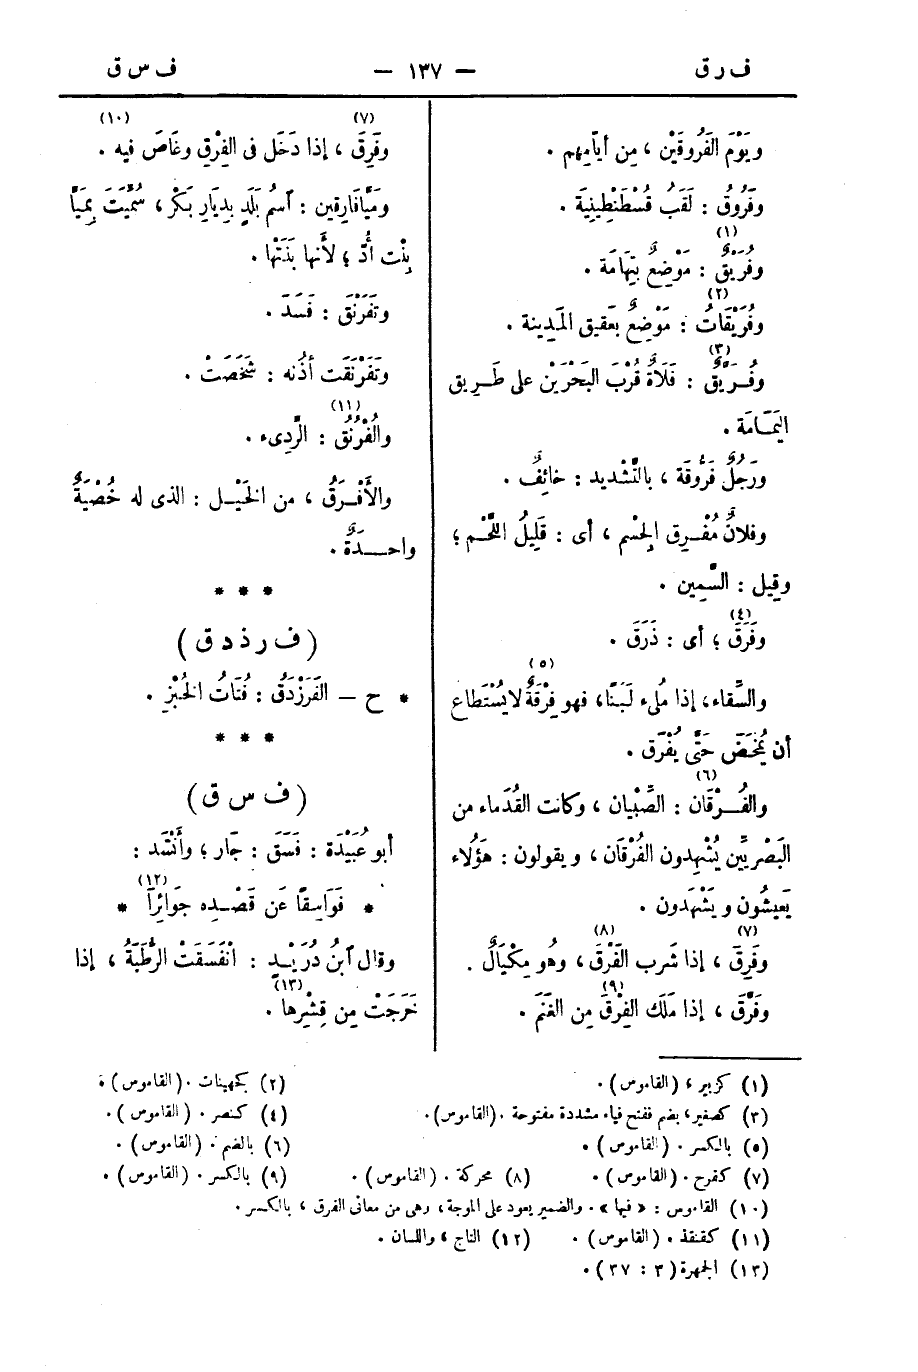 ف ر ق — ١٣٧ — ف س ق
ويَوْمَ الفَرُوقَيْن ، مِن أيّامِهم .
وفَرُوقُ : لَقَبُ قُسْطَنْطِينِيَة .
(١)
وفُرَيْقٌ : مَوْضِعٌ بتِهَامَة .
(٢)
وفُرَيْقَاتُ : مَوْضِعٌ بعَقيق المَدِينة .
(٣)
وفُــرَيِّقٌ : فَلَاةٌ قُرْبَ البَحْرَيْن على طَـرِيق
اليَمَـامَة .
ورَجُلٌ فَرُّوقَة ، بالتَّشْديد : خائِفٌ .
وفلانٌ مُفْـرِق الجِسْم ، أى : قَلِيلُ اللَّحْـم ؛
وقِيل : السَّمِين .
(٤)
وفَرَقَ ؛ أى : ذَرَقَ .
(٥)
والسِّقاء، إذا مُلِىء لَـبَنًا، فهو فِرْقَةٌ لا يُسْتَطاع
أن يُمْخَضَ حَتَّى يُفْرَق .
(٦)
والفُــرْقَان : الصِّبْيان ، وكانت القُدَماء من
البَصْرِيِّين يُشْهِدون الفُرْقَان ، ويقولون : هَؤُلاء
يَعِيشُون ويَشْهَدون .
(٧) (٨)
وفَرِقَ ، إذا شَرِب الفَرَْقَ ، وهُو مِكْيَالٌ .
(٩)
وفَرَّقَ ، إذا مَلَك الفِرْقَ مِن الغَنَم .
(٧) (١٠)
وفَرِقَ ، إذا دَخَل فى الفِرْقِ وغَاصَ فيه .
ومَيَّافَارِقِين : آسمُ بَلَدٍ بِدِيَارِ بَكْر ، سُمِّيَتَ بِمَيَّا
بِنْت أُدّ ؛ لأَنها بَنَتْها .
وتَفَرْنَقَ : فَسَدَ .
وتَفَرْنَقَت أُذُنه : شَخَصَتْ .
(١١)
والفُرْنُق : الرَّدِىء .
والأَفْـرَقُ ، من الخَيْـل : الذى له خُصْيَةٌ
واحــدَةٌ .
* * *
( ف ر ذ د ق )
* ح — الفَرَزْدَقُ : فُتَاتُ الخُبْزِ .
* * *
( ف س ق )
أبو عُبَيْدَة : فَسَقَ : جَار ؛ وأَنْشَد :
(١٢)
* فَوَاسِقًا عَن قَصْـدِه جَوَائِرَا *
وقال آبنُ دُرَيْـدٍ : انْفَسَقَتْ الرُّطَبَةُ ، إذا
(١٣)
خَرَجَتْ مِن قِشْرِها .
(١) كزبير ، (القاموس) . (٢) كجهينات . (القاموس) .
(٣) كصغير، بضم ففتح فياء مشددة مفتوحة . (القاموس) . (٤) كنصر . (القاموس) .
(٥) بالكسر . (القاموس) . (٦) بالضم . (القاموس) .
(٧) كفرح . (القاموس) . (٨) محركة . (القاموس) . (٩) بالكسر . (القاموس) .
(١٠) القاموس : « فيها » . والضمير يعود على الموجة ، وهى من معانى الفرق ، بالكسر .
(١١) كقنفذ . (القاموس) . (١٢) التاج ، واللسان .
(١٣) الجمهرة (٣ : ٣٧) .